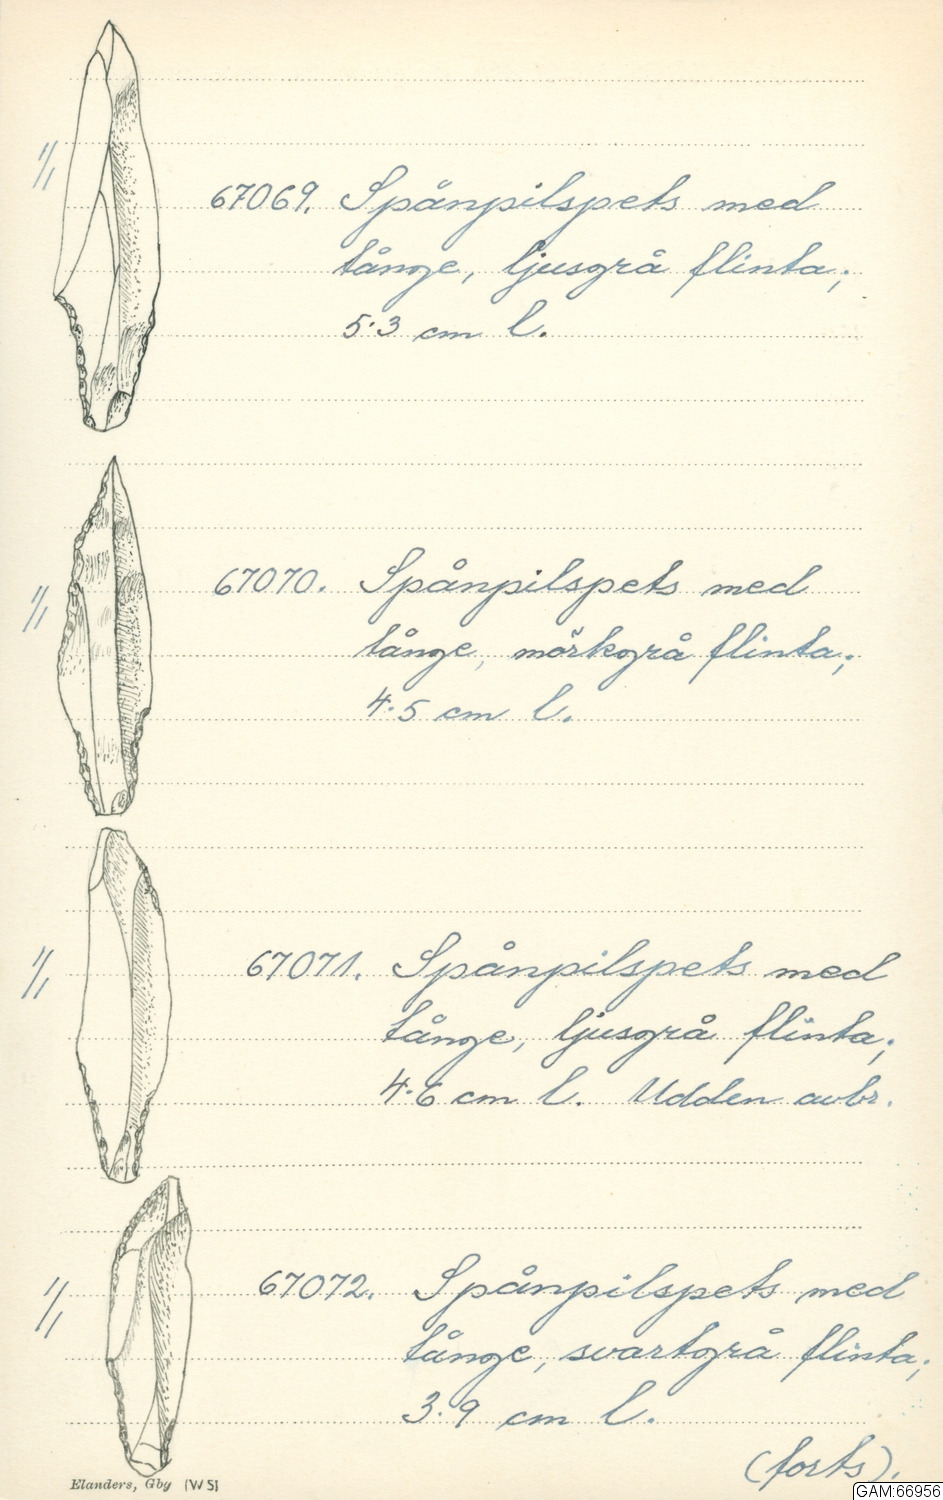 1/1
67069. Spånpilspets med
tånge, ljusgrå flinta;
5.3 cm l.
1/1
67070. Spånpilspets med
tånge, mörkgrå flinta;
4.5 cm l.
1/1
67071. Spånpilspets med
tånge, ljusgrå flinta;
4.6 cm l. Udden avbr.
1/1
67072. Spånpilspets med
tånge, svartgrå flinta;
3.9 cm l.
(forts).
Elanders, Gby (WS)
GAM:66956